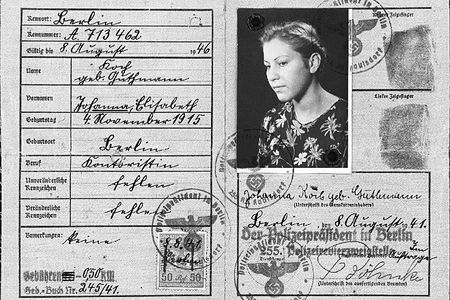 Kennort: Berlin
Kennummer: A 713 462
Gültig bis 8. August 1946
Name Koch
geb. Guthmann
Vornamen Johanna, Elisabeth
Geburtstag 4. November 1915
Geburtsort Berlin
Beruf Kontoristin
Unveränderliche Kennzeichen fehlen
Veränderliche Kennzeichen fehlen
Bemerkungen: keine
Gebühren 050 RM
Geb.-Buch Nr. 245/41.
50 Rpf 50
Rechter Zeigefinger
Linker Zeigefinger
Johanna Koch geb. Guthmann
(Unterschrift des Kennkarteninhabers)
Berlin, den 8. August 41.
Der Polizeipräsident in Berlin
255. Polizeirevierzweigstelle
Im Auftrage
(Unterschrift des ausfertigenden Beamten)